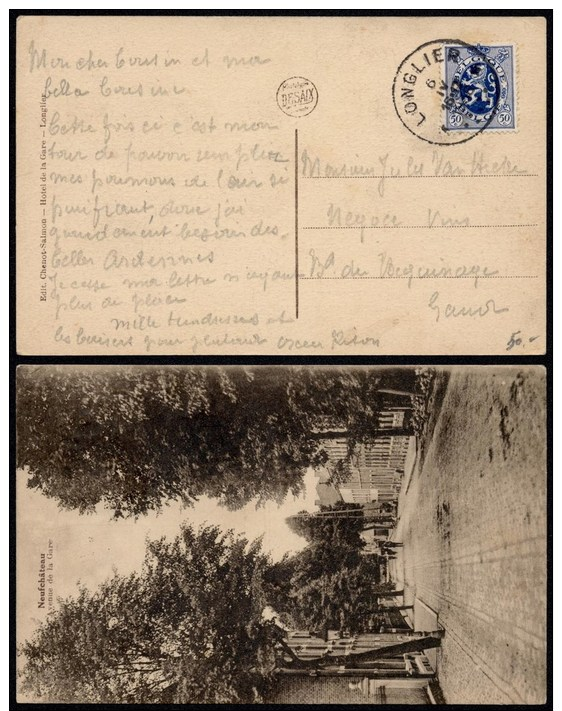 Mon cher Cousin et ma
belle Cousine
Cette fois ci c'est mon
tour de pouvoir remplir
mes poumons de l'air si
purifiant, dont j'ai
grandement besoin des
belles Ardennes
Je cesse ma lettre n'ayant
plus de place
mille tendresses et
les baisers pour plusieurs
Edit. Chenot-Salmon — Hotel de la Gare — Longlier
DESAIX
LONGLIER
6
BELGIQUE
50 50
Monsieur Jules Van
Negoce Vins
Bd du Beguinage
Gand
50,-
Neufchâteau
Avenue de la Gare